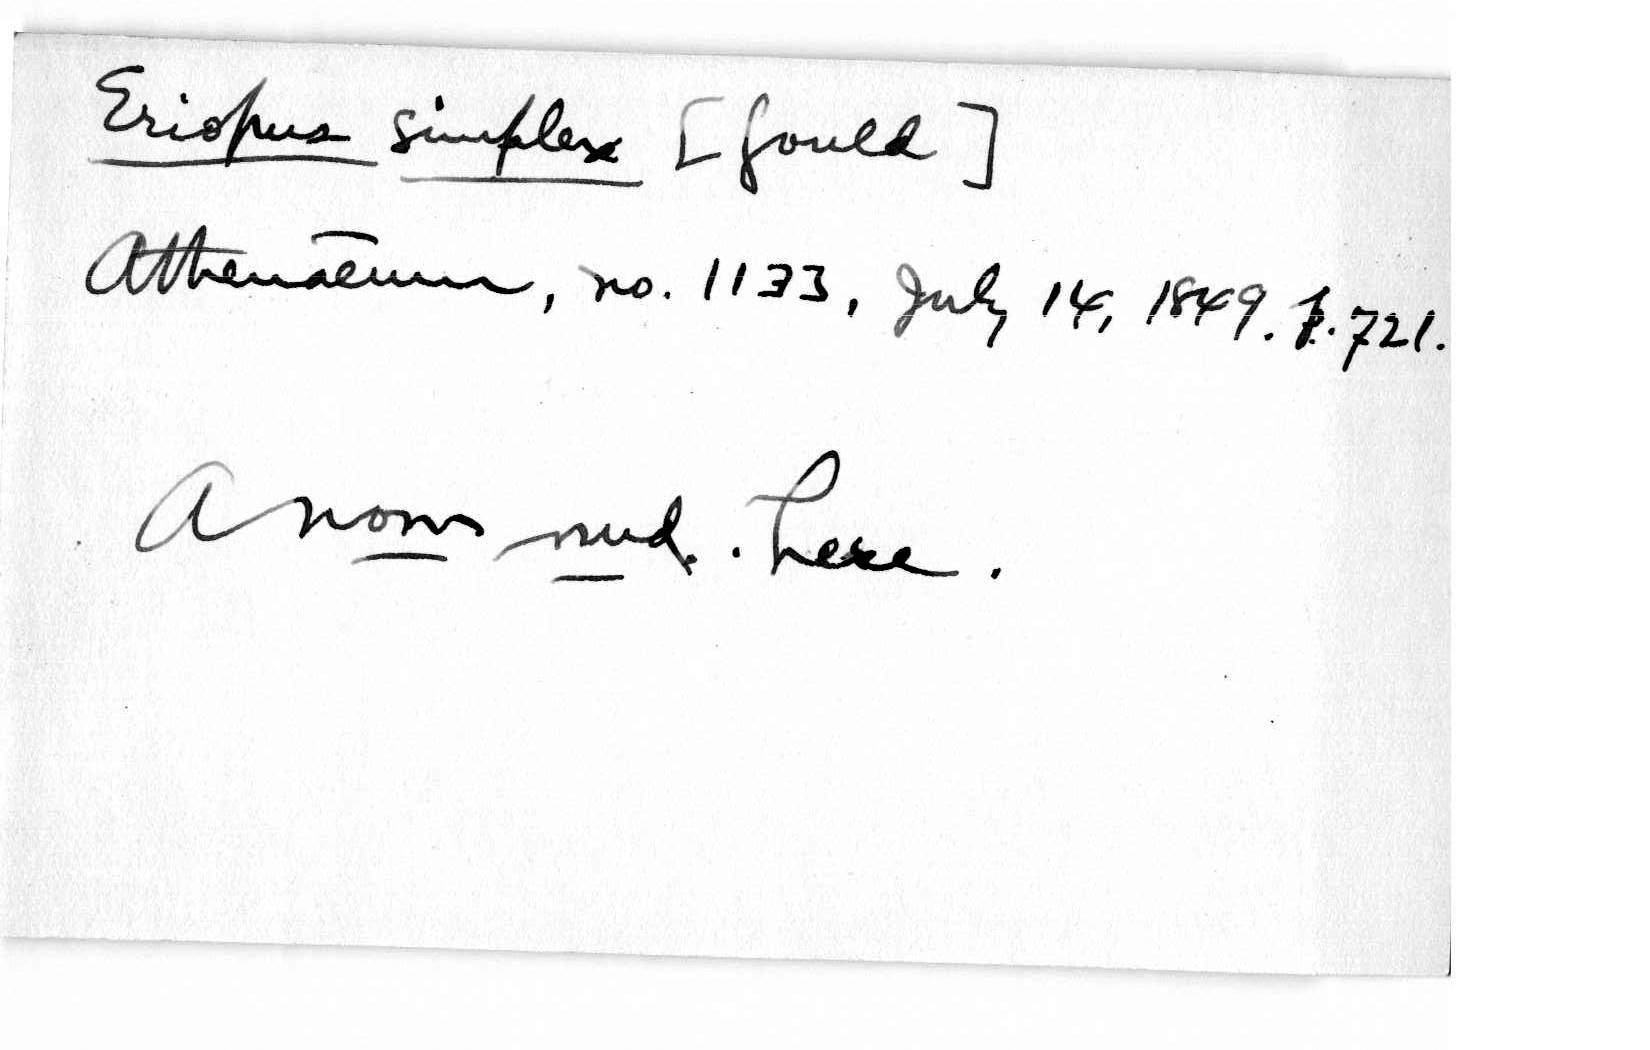 Eriopus simplex [Gould]
Athenaeum, no. 1133, July 14, 1849. p. 721.
A nom nud. here.